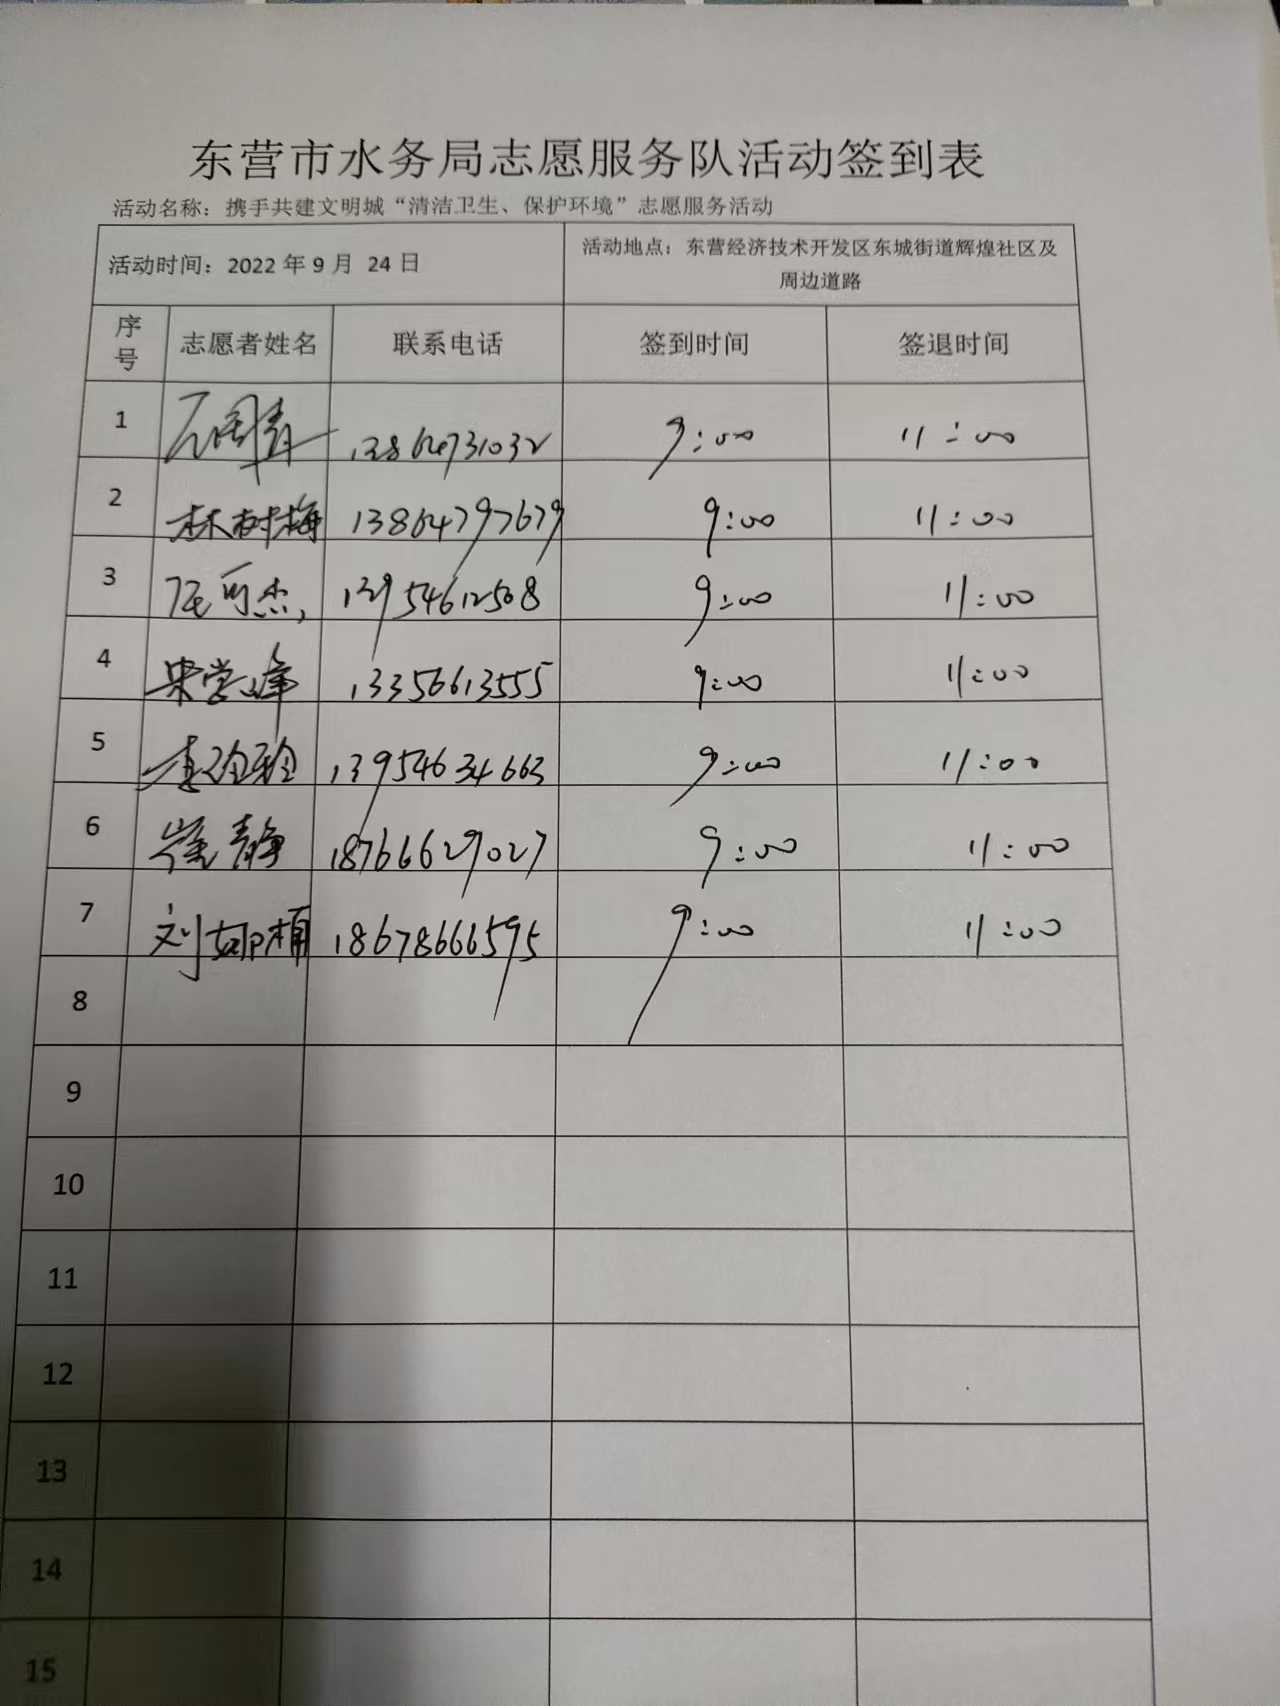 东营市水务局志愿服务队活动签到表
活动名称：携手共建文明城“清洁卫生、保护环境”志愿服务活动
活动时间：2022年9月 24日 活动地点：东营经济技术开发区东城街道辉煌社区及
周边道路
序号 志愿者姓名 联系电话 签到时间 签退时间
1 13864731032 9:00 11:00
2 林树梅 13864797679 9:00 11:00
3 可杰 13954612508 9:00 11:00
4 宋营峰 13356613555 9:00 11:00
5 李玲玲 13954634663 9:00 11:00
6 崔静 18766629027 9:00 11:00
7 刘娜楠 18678666595 9:00 11:00
8
9
10
11
12
13
14
15